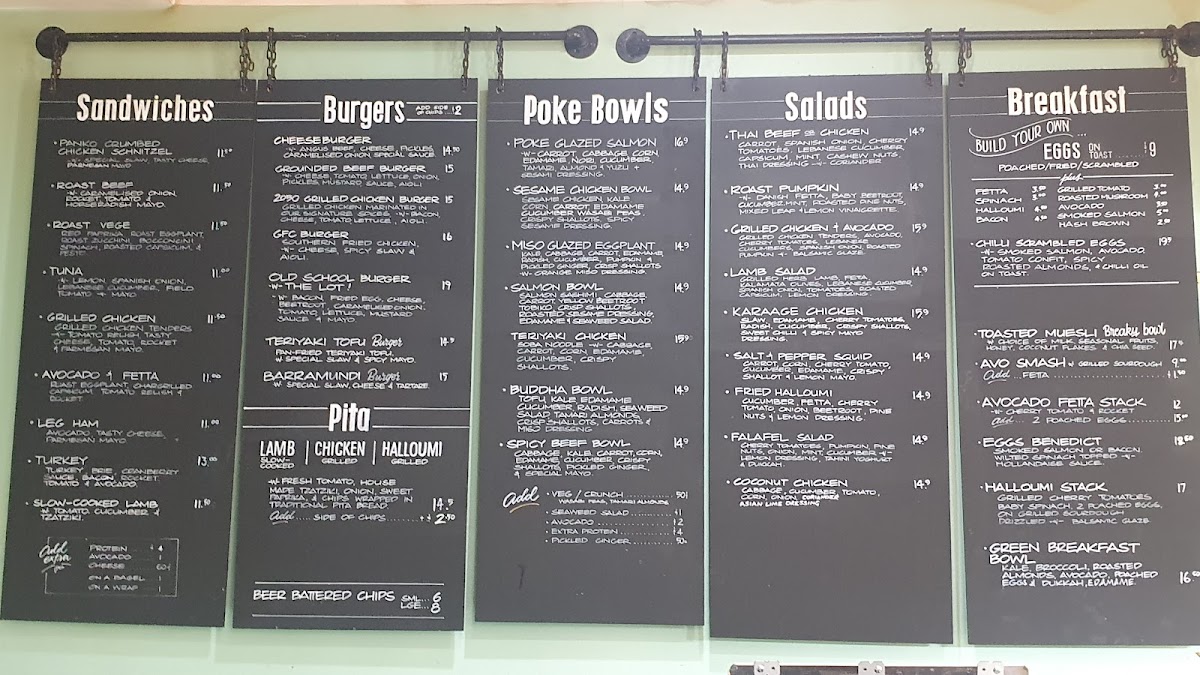 Sandwiches
PANKO CRUMBED
CHICKEN SCHNITZEL 11.50
W/ SPECIAL SLAW, TASTY CHEESE,
PARMESAN MAYO
ROAST BEEF 11.50
W/ CARAMELISED ONION,
ROCKET, TOMATO &
HORSERADISH MAYO.
ROAST VEGE 11.50
RED PAPRIKA, ROAST EGGPLANT,
ROAST ZUCCHINI, BOCCONCINI
SPINACH, ROASTED CAPSICUM, &
PESTO
TUNA 11.00
W/ LEMON, SPANISH ONION,
LEBANESE CUCUMBER, FIELD
TOMATO & MAYO
GRILLED CHICKEN 11.50
GRILLED CHICKEN TENDERS
W/ TOMATO RELISH, TASTY
CHEESE, TOMATO, ROCKET
& PARMESAN MAYO.
AVOCADO & FETTA 11.00
ROAST EGGPLANT, CHARGRILLED
CAPSICUM, TOMATO RELISH &
ROCKET
LEG HAM 11.00
AVOCADO, TASTY CHEESE,
PARMESAN MAYO
TURKEY 13.00
TURKEY, BRIE, CRANBERRY
SAUCE, BACON, ROCKET,
TOMATO & AVOCADO.
SLOW-COOKED LAMB 11.50
W/ TOMATO, CUCUMBER &
TZATZIKI.
Add extra
PROTEIN 4
AVOCADO 1
CHEESE 60¢
ON A BAGEL 1
ON A WRAP 1
Burgers ADD SIDE
OF CHIPS $2
CHEESEBURGER 14.50
W/ ANGUS BEEF, CHEESE, PICKLES,
CARAMELISED ONION, SPECIAL SAUCE
GROUNDED BEEF BURGER 15
W/ CHEESE, TOMATO, LETTUCE, ONION,
PICKLES, MUSTARD SAUCE, AIOLI.
2090 GRILLED CHICKEN BURGER 15
GRILLED CHICKEN MARINATED IN
OUR SIGNATURE SPICES W/ BACON,
CHEESE, TOMATO, LETTUCE, AIOLI.
GFC BURGER 16
SOUTHERN FRIED CHICKEN,
W/ CHEESE, SPICY SLAW &
AIOLI.
OLD SCHOOL BURGER
-W- THE LOT! 19
W/ BACON, FRIED EGG, CHEESE,
BEETROOT, CARAMELISED ONION,
TOMATO, LETTUCE, MUSTARD
SAUCE & MAYO.
TERIYAKI TOFU Burger 14.5
PAN-FRIED TERIYAKI TOFU
W/ SPECIAL SLAW & SPICY MAYO.
BARRAMUNDI Burger 15
W/ SPECIAL SLAW, CHEESE & TARTARE
Pita
LAMB | CHICKEN | HALLOUMI
SLOW-COOKED GRILLED GRILLED
W/ FRESH TOMATO, HOUSE
MADE TZATZIKI, ONION, SWEET
PAPRIKA & CHIPS WRAPPED IN
TRADITIONAL PITA BREAD. 14.5
Add ... SIDE OF CHIPS ..... + 2.50
BEER BATTERED CHIPS SML... 6
LGE... 8
Poke Bowls
POKE GLAZED SALMON 16.9
W/ CARROT, CABBAGE, CORN,
EDAMAME, NORI, CUCUMBER
TAMARI, ALMOND & YUZU
SESAME DRESSING.
SESAME CHICKEN BOWL 14.9
SESAME CHICKEN, KALE
CORN, CARROT, EDAMAME
CUCUMBER, WASABI PEAS,
CRISPY SHALLOTS, SPICY
SESAME DRESSING.
MISO GLAZED EGGPLANT 14.9
KALE, CABBAGE, CARROT, EDAMAME,
RADISH, CUCUMBER, PUMPKIN &
PICKLED GINGER, CRISP SHALLOTS
W/ ORANGE MISO DRESSING.
SALMON BOWL 14.9
SALMON SASHIMI, CABBAGE
CARROT, YELLOW BEETROOT
TOBIKO, CRISP SHALLOTS,
ROASTED SESAME DRESSING,
EDAMAME & SEAWEED SALAD.
TERIYAKI CHICKEN 15.90
SOBA NOODLE W/ CABBAGE,
CARROT, CORN, EDAMAME,
CUCUMBER, CRISPY
SHALLOTS.
BUDDHA BOWL 14.9
TOFU, KALE, EDAMAME
CUCUMBER, RADISH, SEAWEED
SALAD, TAMARI ALMONDS,
CRISP SHALLOTS, CARROTS &
MISO DRESSING
SPICY BEEF BOWL 14.9
CABBAGE, KALE, CARROT, CORN,
EDAMAME, CUCUMBER, CRISPY
SHALLOTS, PICKLED GINGER,
& SPECIAL MAYO
Add
VEG / CRUNCH .......... 50¢
WASABI PEAS, TAMARI ALMONDS
SEAWEED SALAD ........ $1
AVOCADO ............ $2
EXTRA PROTEIN ........ $4
PICKLED GINGER ....... 50¢
Salads
THAI BEEF OR CHICKEN 14.9
CARROT, SPANISH ONION, CHERRY
TOMATOES, LEBANESE CUCUMBER,
CAPSICUM, MINT, CASHEW NUTS,
THAI DRESSING W/ CORIANDER
ROAST PUMPKIN 14.9
W/ DANISH FETTA, BABY BEETROOT,
CUCUMBER, MINT, ROASTED PINE NUTS,
MIXED LEAF & LEMON VINAIGRETTE.
GRILLED CHICKEN & AVOCADO 15.9
GRILLED CHICKEN TENDERS, AVOCADO,
CHERRY TOMATOES, LEBANESE
CUCUMBERS, SPANISH ONION, ROASTED
PUMPKIN & BALSAMIC GLAZE.
LAMB SALAD 14.9
GRILLED HERB LAMB, FETA,
KALAMATA OLIVES, LEBANESE CUCUMBER,
SPANISH ONION, TOMATOES, ROASTED
CAPSICUM, LEMON DRESSING.
KARAAGE CHICKEN 15.9
SLAW, EDAMAME, CHERRY TOMATOES,
RADISH, CUCUMBER, CRISPY SHALLOTS,
SWEET CHILLI & SPICY MAYO
DRESSING.
SALT & PEPPER SQUID 14.9
CARROT, CORN, CHERRY TOMATO,
CUCUMBER, EDAMAME, CRISPY
SHALLOT & LEMON MAYO.
FRIED HALLOUMI 14.9
CUCUMBER, FETTA, CHERRY
TOMATO, ONION, BEETROOT, PINE
NUTS & LEMON DRESSING.
FALAFEL SALAD 14.9
CHERRY TOMATOES, PUMPKIN, PINE
NUTS, ONION, MINT, CUCUMBER W/
LEMON DRESSING, TAHINI YOGHURT
& DUKKAH.
COCONUT CHICKEN 14.9
CABBAGE, CUCUMBER, TOMATO,
CORN, ONION, CORIANDER
ASIAN LIME DRESSING
Breakfast
BUILD YOUR OWN ...
EGGS ON TOAST ...... $9
POACHED/FRIED/SCRAMBLED
plus
FETTA 3.50
SPINACH 3.50
HALLOUMI 4.50
BACON 4.50
GRILLED TOMATO
ROASTED MUSHROOM
AVOCADO
SMOKED SALMON
HASH BROWN
CHILLI SCRAMBLED EGGS 19.50
W/ SMOKED SALMON, AVOCADO,
TOMATO CONFIT, SPICY
ROASTED ALMONDS, & CHILLI OIL
ON TOAST.
TOASTED MUESLI Breaky bowl
W/ CHOICE OF MILK, SEASONAL FRUITS,
HONEY, COCONUT FLAKES & CHIA SEED. 17.5
AVO SMASH W/ GRILLED SOURDOUGH 9.00
Add ... FETA ............ +1.50
AVOCADO FETTA STACK 12
W/ CHERRY TOMATO & ROCKET
Add ... 2 POACHED EGGS ....... 15.00
EGGS BENEDICT 18.50
SMOKED SALMON OR BACON,
WILTED SPINACH TOPPED W/
HOLLANDAISE SAUCE.
HALLOUMI STACK 17
GRILLED CHERRY TOMATOES
BABY SPINACH, 2 POACHED EGGS,
ON GRILLED SOURDOUGH
DRIZZLED W/ BALSAMIC GLAZE
GREEN BREAKFAST
BOWL
KALE, BROCCOLI, ROASTED
ALMONDS, AVOCADO, POACHED
EGGS & DUKKAH, EDAMAME. 16.50